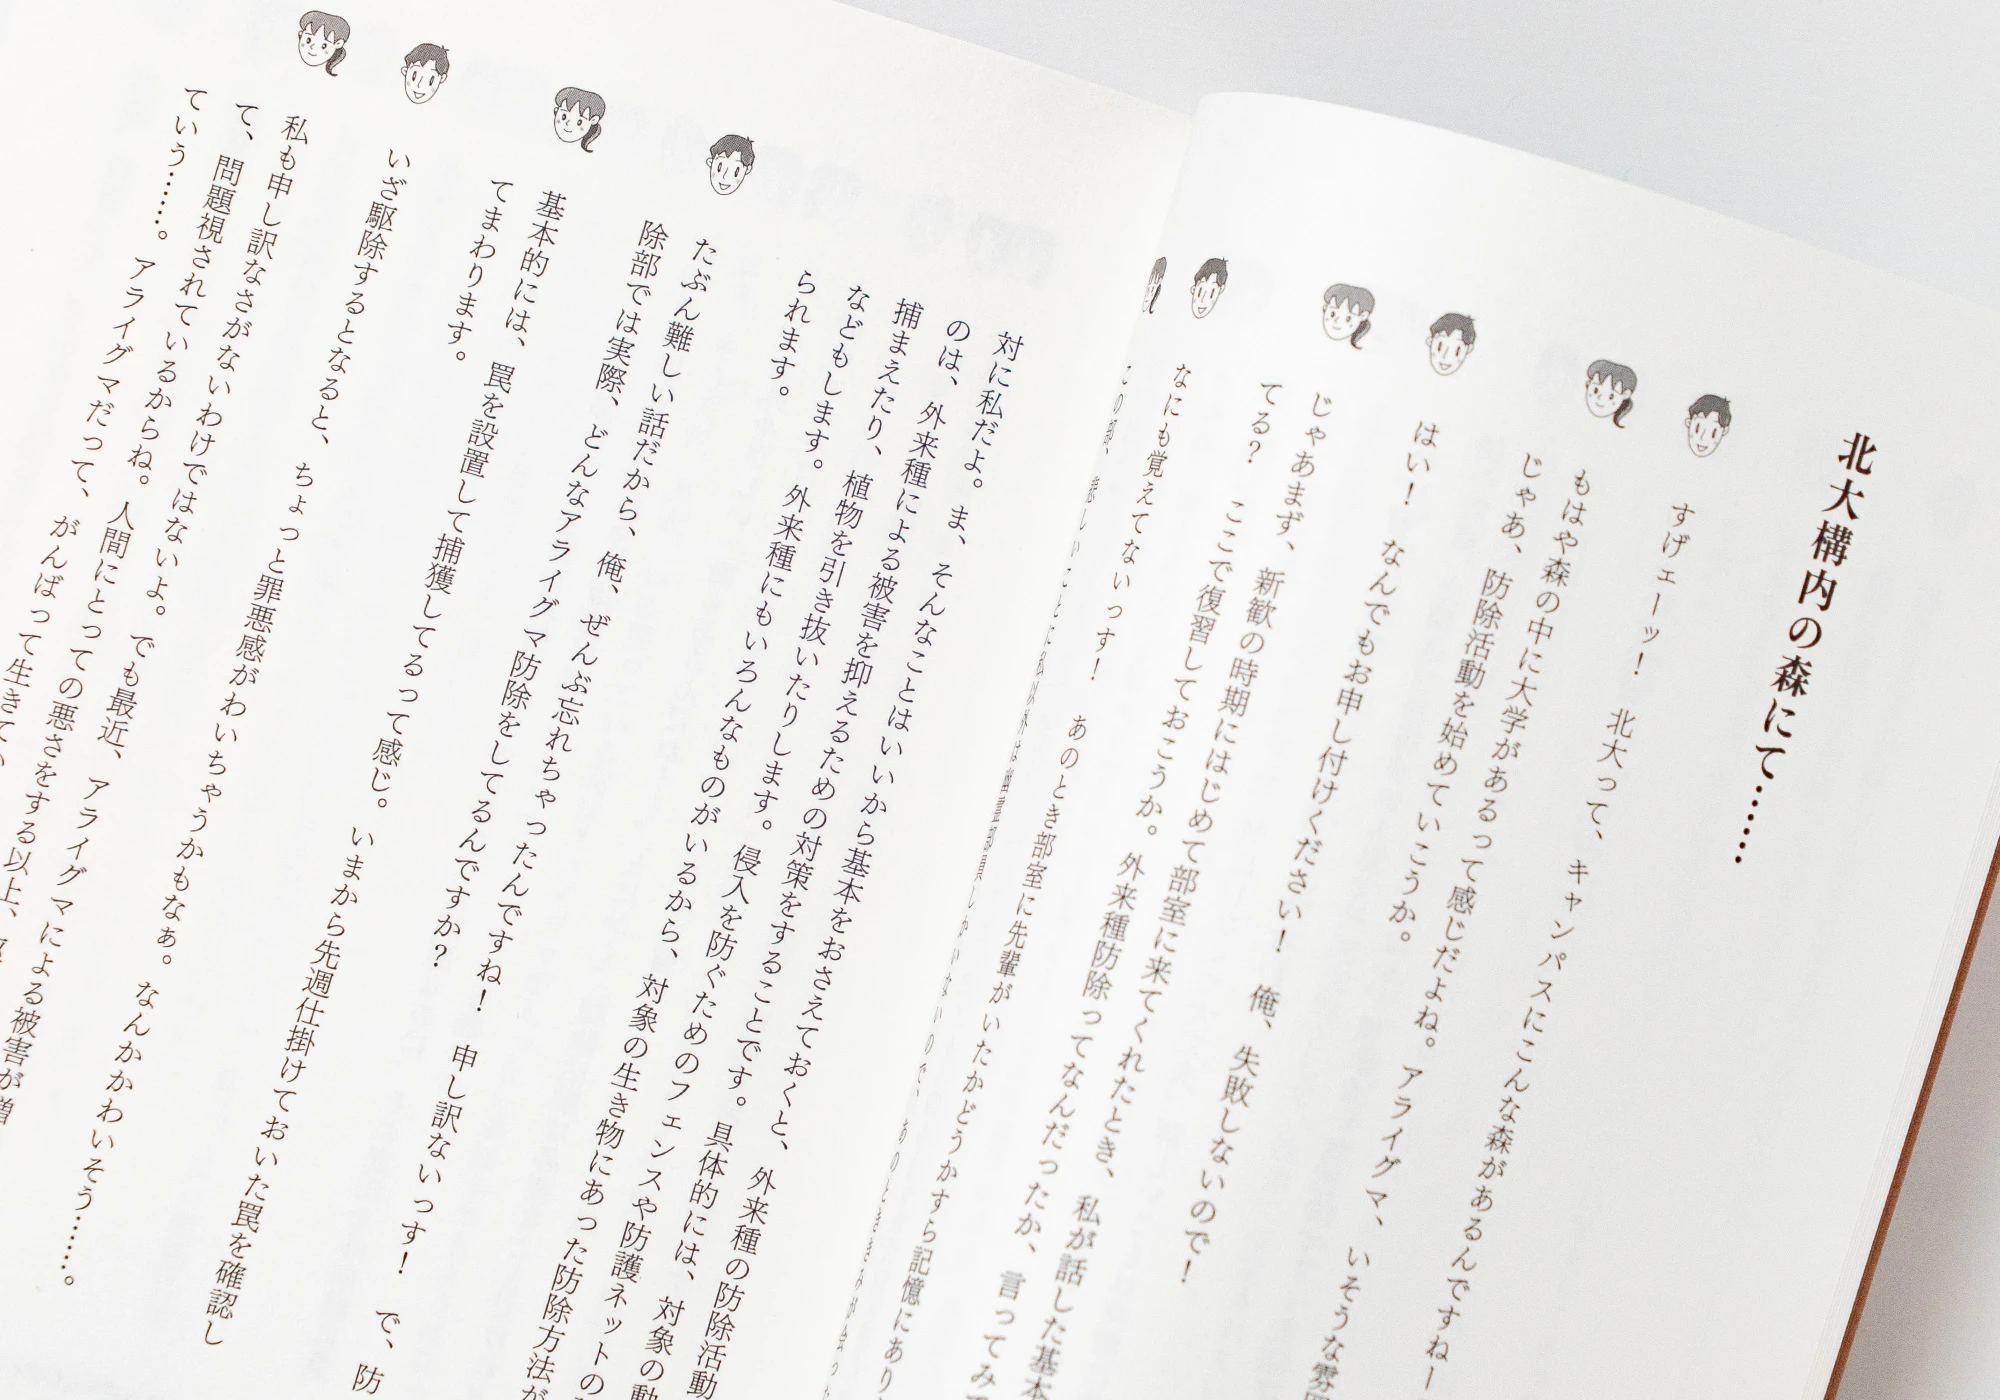 北大構内の森にて……
すげェーッ！　北大って、キャンパスにこんな森があるんですねー
もはや森の中に大学があるって感じだよね。アライグマ、いそうな雰
じゃあ、防除活動を始めていこうか。
はい！　なんでもお申し付けください！　俺、失敗しないので！
じゃあまず、新歓の時期にはじめて部室に来てくれたとき、私が話した基本
てる？　ここで復習しておこうか。外来種防除ってなんだったか、言ってみて
なにも覚えてないっす！　あのとき部室に先輩がいたかどうかすら記憶にあり
この部、悲しいことに私以外は幽霊部員しかいないので、あのとききみが会っ
対に私だよ。ま、そんなことはいいから基本をおさえておくと、外来種の防除活動
のは、外来種による被害を抑えるための対策をすることです。具体的には、対象の動
捕まえたり、植物を引き抜いたりします。侵入を防ぐためのフェンスや防護ネットの
などもします。外来種にもいろんなものがいるから、対象の生き物にあった防除方法が
られます。
たぶん難しい話だから、俺、ぜんぶ忘れちゃったんですね！　申し訳ないっす！　で、防
除部では実際、どんなアライグマ防除をしてるんですか？
基本的には、罠を設置して捕獲してるって感じ。いまから先週仕掛けておいた罠を確認し
てまわります。
いざ駆除するとなると、ちょっと罪悪感がわいちゃうかもなぁ。なんかかわいそう……。
私も申し訳なさがないわけではないよ。でも最近、アライグマによる被害が増
て、問題視されているからね。人間にとっての悪さをする以上、
ていう……。アライグマだって、がんばって生きてい